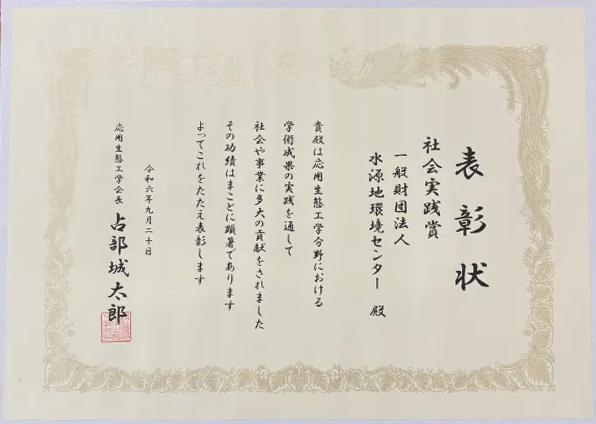 表彰状
社会実践賞
一般財団法人
水源地環境センター 殿
貴殿は応用生態工学分野における
学術成果の実践を通して
社会や事業に多大の貢献をされました
その功績はまことに顕著であります
よってこれをたたえ表彰します
令和六年九月二十日
応用生態工学会長 占部城太郎